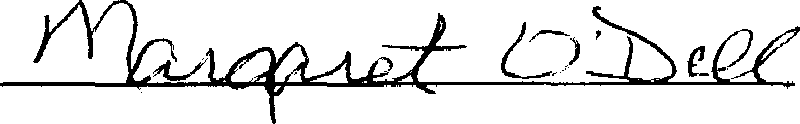 Margaret O'Dell